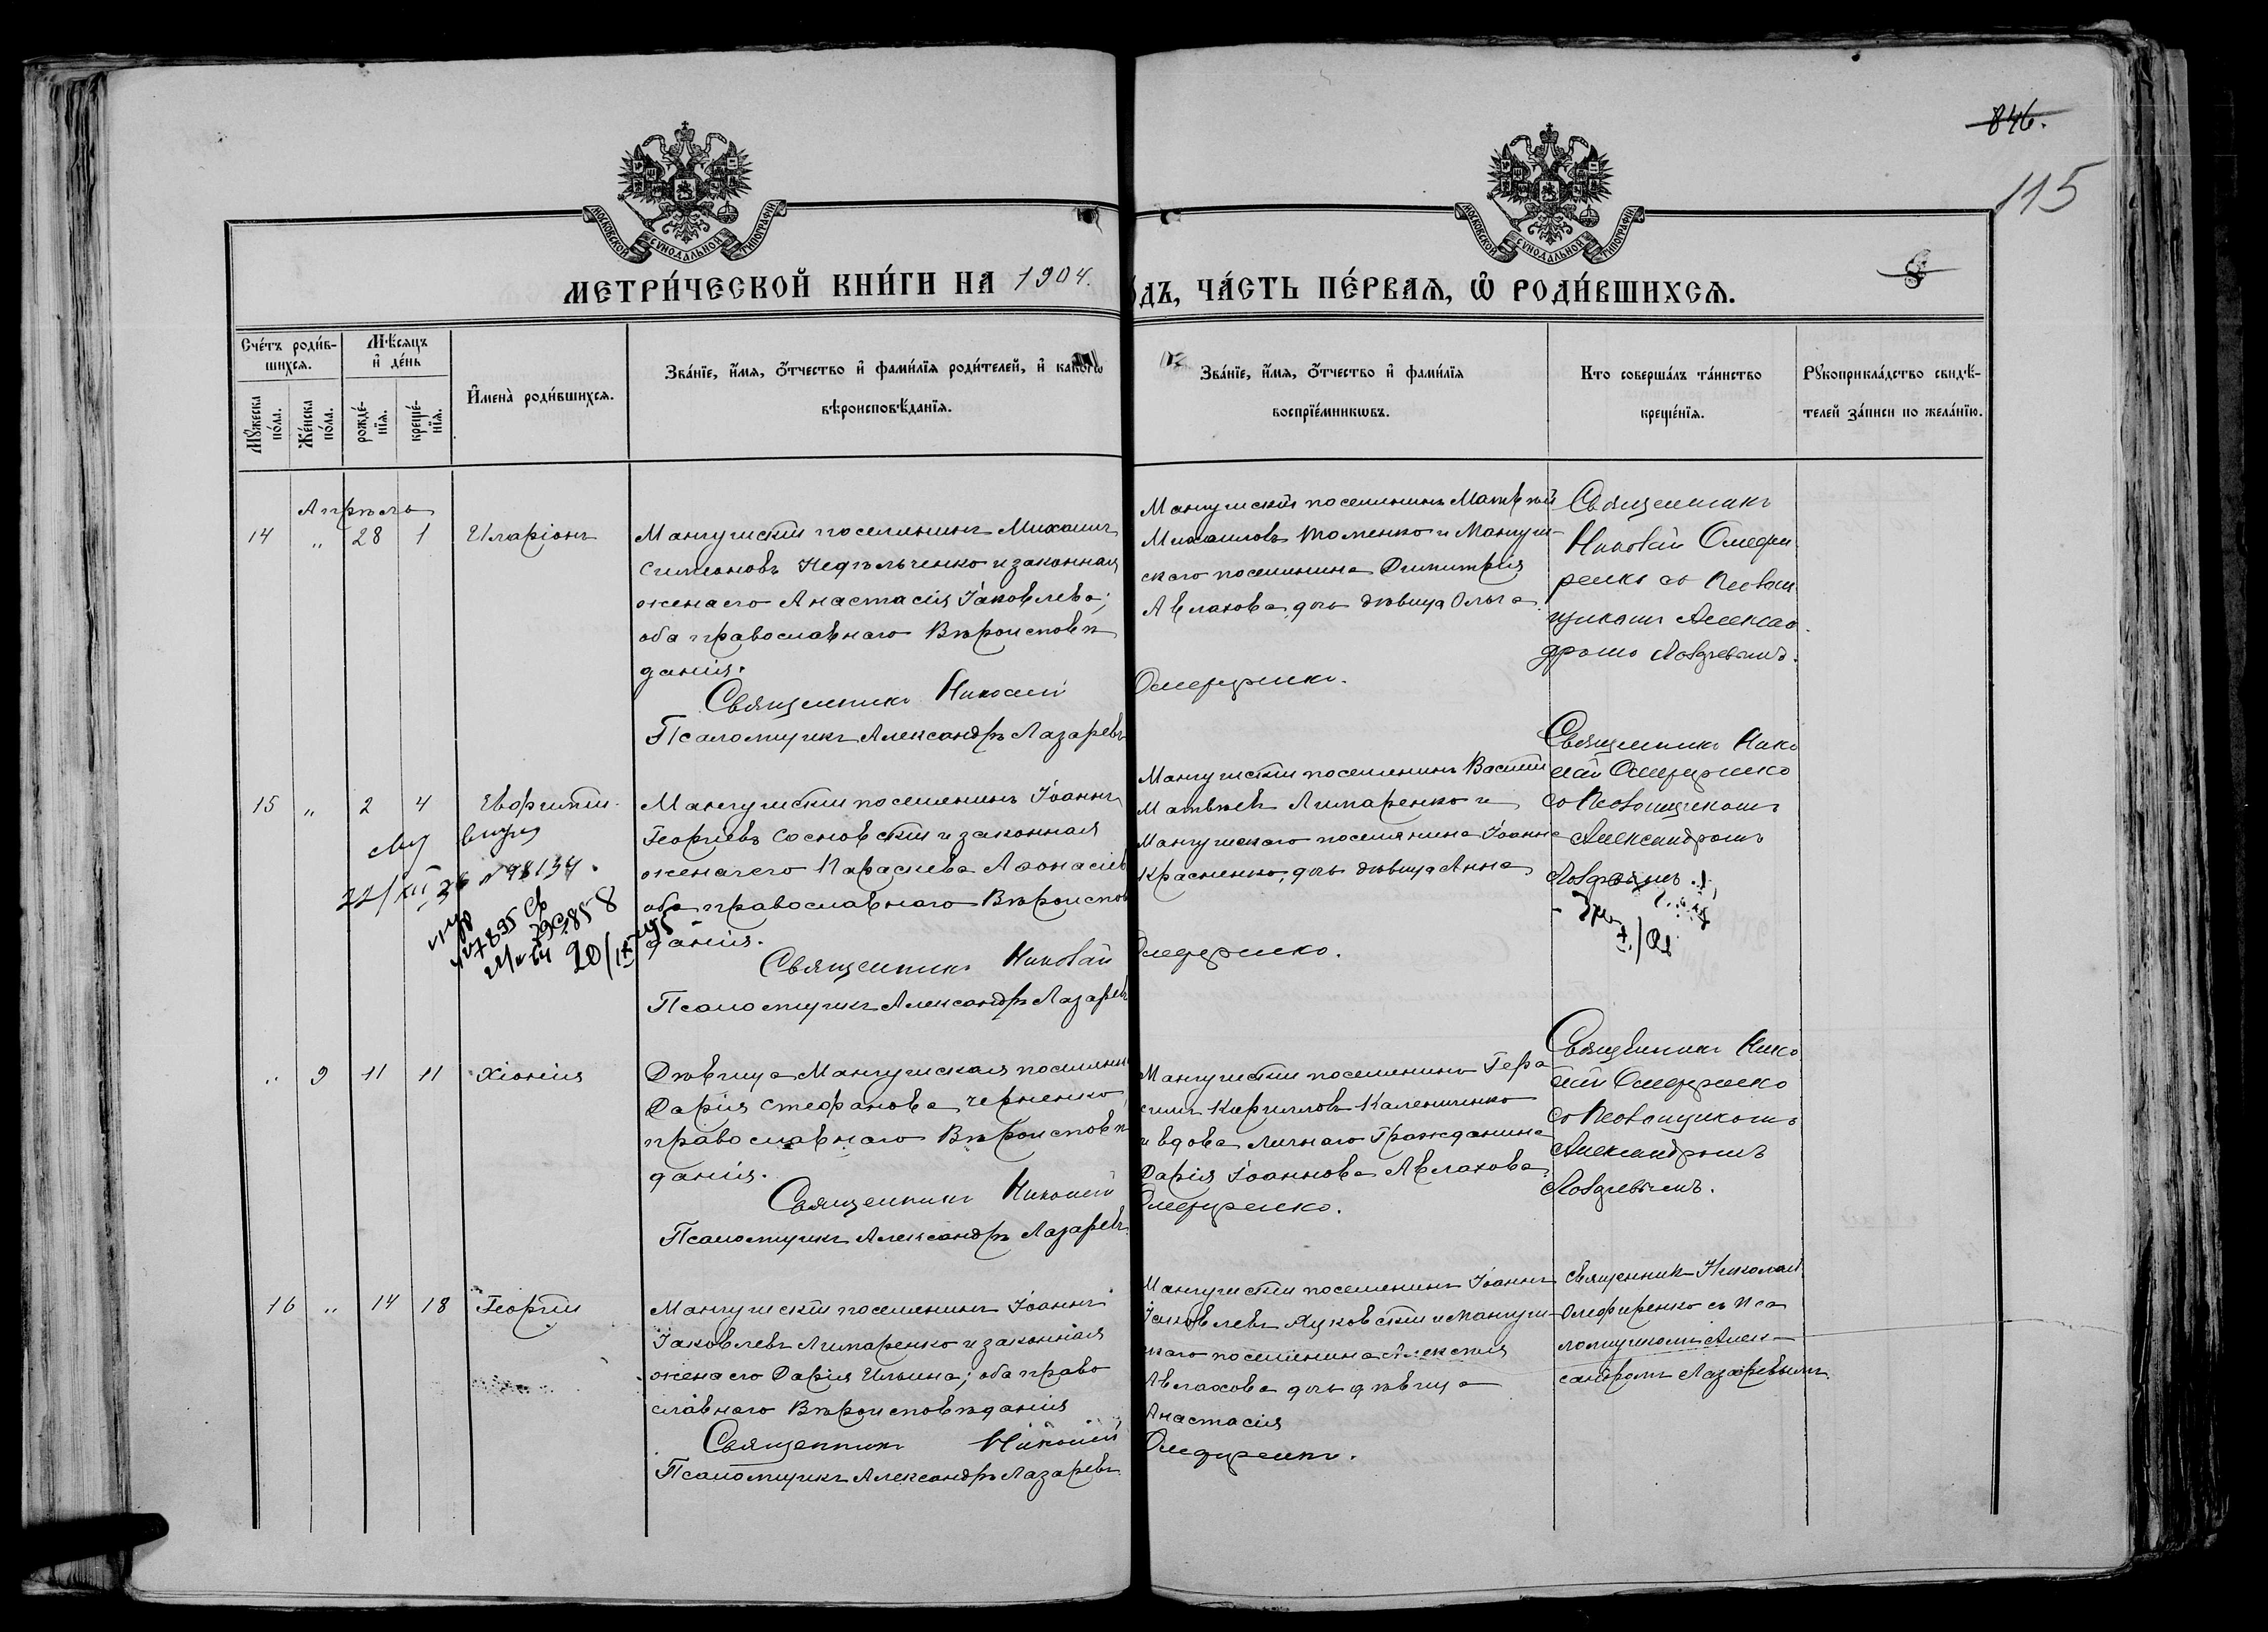 846.
115
МОСКОВСКОЙ СѴНОДАЛЬНОЙ ТИПОГРАФІИ
МОСКОВСКОЙ СѴНОДАЛЬНОЙ ТИПОГРАФІИ
МЕТРИ́ЧЕСКОЙ КНИ́ГИ НА 1904.
ДЪ, ЧА́СТЬ ПЕ́РВАѦ, Ѡ҆ РОДИ́ВШИХСѦ.
8
Сче́тъ роди́в-
шихсѧ.
Мꙋ́жеска по́ла.
Же́нска по́ла.
Мѣ́сѧцъ
и҆ де́нь
рожде́-
нїѧ.
креще́-
нїѧ.
И҆мена̀ роди́вшихсѧ.
Зва́нїе, и҆́мѧ, ѻ҆́тчество и҆ фами́лїѧ роди́телей, и҆ како́гѡ
вѣроисповѣ́данїѧ.
Зва́нїе, и҆́мѧ, ѻ҆́тчество и҆ фами́лїѧ
воспрїе́мникѡвъ.
Кто̀ соверша́лъ та́инство
креще́нїѧ.
Рꙋкоприкла́дство свидѣ́-
телей за́писи по жела́нїю.
Апрѣль
14 „ 28 1 Иларіонъ
Мангушскій поселянинъ Михаилъ
Симеоновъ Недѣльченко и законная
жена его Анастасія Іаковлева;
оба православнаго Вѣроисповѣ
данія.
Священникъ Николай
Псаломщикъ Александръ Лазаревъ
Мангушскій поселянинъ Матвѣй
Михаиловъ Томенко и Мангуш-
скаго поселянина Димитрія
Авлахова, дочь дѣвица Ольга
Олефиренко.
Священникъ
Николай Олефи
ренко съ Псалом
щикомъ Алексан
дромъ Лазаревымъ.
15 „ 2 4 Евфимій
Мангушскій поселянинъ Іоаннъ
Георгіевъ Сосновскій и законная
жена его Параскева Аѳонасіев
оба православнаго Вѣроиспов
данія.
Священникъ Николай
Псаломщикъ Александръ Лазаревъ
Мангушскій поселянинъ Василій
Матвѣевъ Лимаренко и
Мангушскаго поселянина Іоанна
Красненко, дочь дѣвица Анна
Олефиренко.
Священникъ Нико
лай Олефиренко
со Псаломщикомъ
Александромъ
Лазаревымъ
22/XII 36 № 98134.
20/IX 45
„ 9 11 11 Хіонія
Дѣвица Мангушская поселянк
Дарія Стефанова Черненко,
православнаго Вѣроисповѣ
данія.
Священникъ Николай
Псаломщикъ Александръ Лазаревъ
Мангушскій поселянинъ Гера
симъ Кирилловъ Калениченко
и вдова личнаго Гражданина
Дарія Іоаннова Авлахова
Олефиренко.
Священникъ Нико
лай Олефиренко
со Псаломщикомъ
Александромъ
Лазаревымъ.
16 „ 14 18 Георгій
Мангушскій поселянинъ Іоаннъ
Іаковлевъ Лимаренко и законная
жена его Дарія Ильина; оба право
славнаго Вѣроисповѣданія
Священникъ Николай
Псаломщикъ Александръ Лазаревъ
Мангушскій поселянинъ Іоаннъ
Іаковлевъ Яцковскій и Мангуш-
скаго поселянина Алексія
Авлахова дочь дѣвица
Анастасія
Олефиренко.
Священникъ Николай
Олефиренко съ Пса
ломщикомъ Алек-
сандромъ Лазаревымъ.